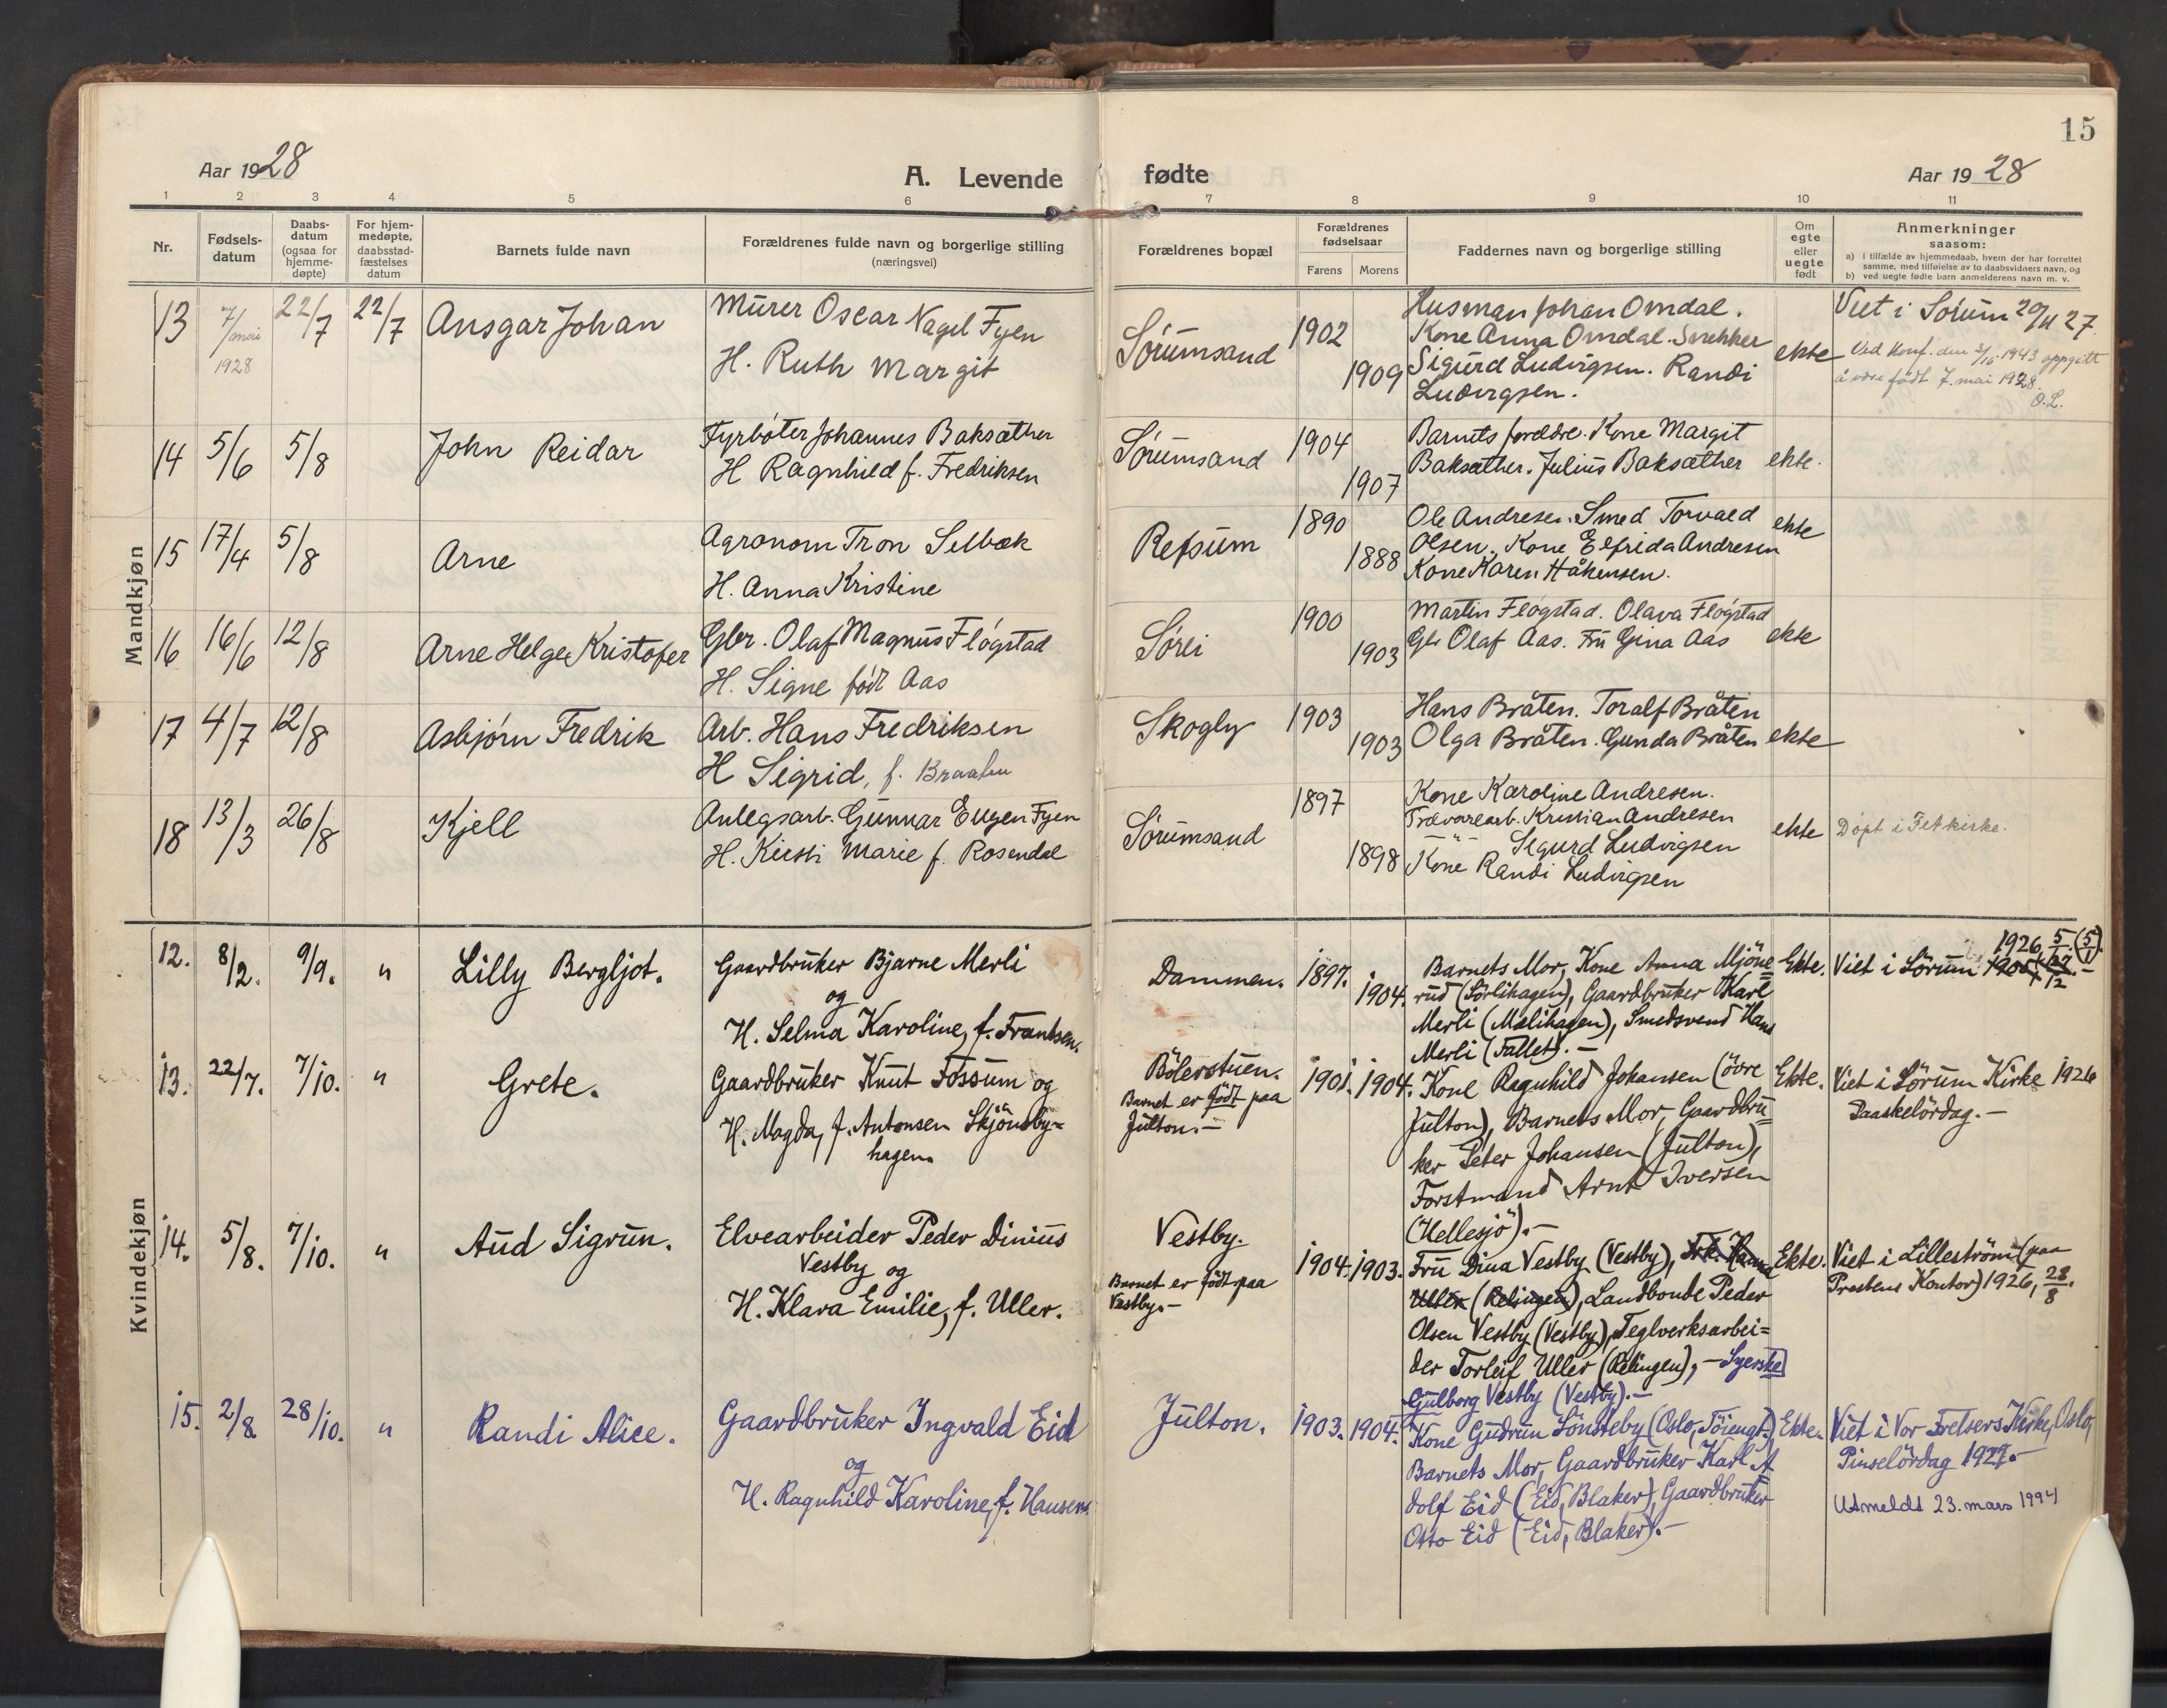 15
Aar 1928
A. Levende fødte
Aar 1928
1 2 3 4 5 6 7 8 9 10 11
Nr.
Fødsels-
datum
Daabs-
datum
(ogsaa for
hjemme-
døpte)
For hjem-
medøpte,
daabsstad-
fæstelses
datum
Barnets fulde navn
Forældrenes fulde navn og borgerlige stilling
(næringsvei)
Forældrenes bopæl
Forældrenes
fødselsaar
Farens Morens
Faddernes navn og borgerlige stilling
Om
egte
eller
uegte
født
Anmerkninger
saasom:
a) i tilfælde av hjemmedaab, hvem der har forrettet
samme, med tilføielse av to daabsvidners navn, og
b) ved uegte fødte barn anmelderens navn m. v.
Mandkjøn
13 7/mai 1928 22/7 22/7 Ansgar Johan
Murer Oscar Nagel Fyen
H. Ruth Margit
Sørumsand
1902
1909
Husman Johan Omdal.
Kone Anna Omdal. Snekker
Sigurd Ludvigsen. Randi
Ludvigsen.
ekte
Viet i Sørum 20/11 27.
Ved konf. den 3/10 1943 oppgitt
å være født 7. mai 1928.
O.L.
14 5/6 5/8 John Reidar
Fyrbøter Johannes Baksæther
H Ragnhild f. Fredriksen
Sørumsand
1904
1907
Barnets forældre. Kone Margit
Baksæther. Julius Baksæther
ekte.
15 17/4 5/8 Arne
Agronom Tron Selbæk
H. Anna Kristine
Refsum
1890
1888
Ole Andresen. Smed Torvald
Olsen. Kone Elfrida Andresen
Kone Karen Håkensen.
ekte
16 16/6 12/8 Arne Helge Kristofer
Gbr. Olaf Magnus Fløgstad
H. Signe født Aas
Sørli
1900
1903
Martin Fløgstad. Olava Fløgstad
Gbr Olaf Aas. Fru Gina Aas
ekte
17 4/7 12/8 Asbjørn Fredrik
Arb. Hans Fredriksen
H Sigrid, f. Braaten
Skogly
1903
1903
Hans Bråten. Toralf Bråten
Olga Bråten. Gunda Bråten
ekte
18 13/3 26/8 Kjell
Anlegsarb. Gunnar Eugen Fyen
H. Kirsti Marie f. Rosendal
Sørumsand
1897
1898
Kone Karoline Andresen.
Trævarearb. Kristian Andresen
— " — Sigurd Ludvigsen
Kone Randi Ludvigsen
ekte
Døpt i Fet kirke.
Kvindekjøn
12. 8/2. 9/9. " Lilly Bergljot.
Gaardbruker Bjarne Merli
og
H. Selma Karoline, f. Frantsen.
Dammen.
1897.
1904.
Barnets Mor, Kone Anna Mjöne=
rud (Sörlihagen), Gaardbruker Karl
Merli (Mælihagen), Smedsvend Hans
Merli (Fallet).—
Ekte.
1926, 5/1. (5/1).
Viet i Sörum
13. 22/7. 7/10. " Grete.
Gaardbruker Knut Fossum og
H. Magda, f. Antonsen Skjönsby=
hagen.
Bölerstuen.
Barnet er født paa
Julton.—
1901. 1904.
Kone Ragnhild Johansen (övre
Julton), Barnets Mor, Gaardbru=
ker Peter Johansen (Julton),
Forstmand Arnt Iversen
(Hellesjö).—
Ekte.
Viet i Sörum Kirke 1926
Paaskelördag.—
14. 5/8. 7/10. " Aud Sigrun.
Elvearbeider Peder Dinius
Vestby og
H. Klara Emilie, f. Uller.
Vestby.
Barnet er födt paa
Vestby.—
1904. 1903.
Fru Dina Vestby (Vestby), Frk. Hanna
Uller (Relingen), Landbonde Peder
Olsen Vestby (Vestby), Teglverksarbei=
der Torleif Uller (Relingen), — Syerske
Gulborg Vestby (Vestby).—
Ekte.
Viet i Lilleström (paa
Prestens Kontor) 1926, 28/8.
15. 2/8. 28/10. " Randi Alice.
Gaardbruker Ingvald Eid
og
H. Ragnhild Karoline, f. Hansen.
Julton.
1903. 1904.
Kone Gudrun Sönsteby (Oslo, Töiengt.),
Barnets Mor, Gaardbruker Karl A
dolf Eid (Eid, Blaker), Gaardbruker
Otto Eid (Eid, Blaker).—
Ekte.
Viet i Vor Frelsers Kirke, Oslo,
Pinselördag 1927.—
Utmeldt 23. mars 1994